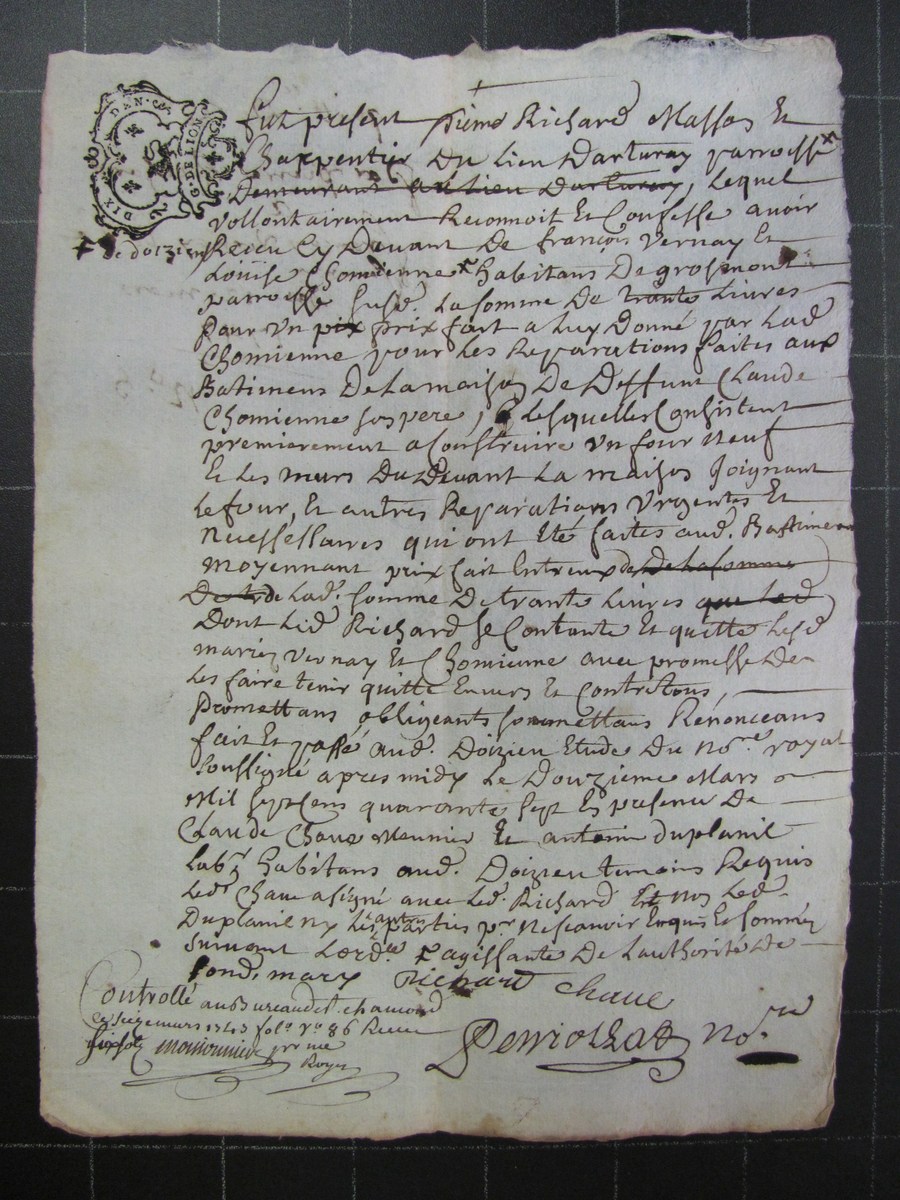 DIX DEN. CES
G. DE LION
Fut présent pierre Richard Masson Et
Charpentier Du lieu Darturay parroisse
Demeurant au lieu Darturay, lequel
vollontairement Reconnoit Et Confesse avoir
de doizieu Receu Cy Devant De francois Vernay Et
Louise Chomienne habitans De grosmont
parroisse susd. La somme De trante Livres
Pour Un pix prix fait a luy Donné par lad.
Chomienne pour les Reparations faites aux
Batimens De la maison De Deffunt Claude
Chomienne son pere, lesquelles Consistent
premierement a Construire un four neuf
Et les murs Du Devant La maison Joignant
Le four, Et autres Reparations Urgentes Et
Necessaires qui ont Eté faites aud. Bastimens
moyennant prix fait Entreux de De la somme
De Lad. somme De trante Livres que Led
Dont Led. Richard se Contante Et quitte Lesd.
mariez Vernay Et Chomienne avec promesse De
Les faire tenir quitte Envers Et Contre tous,
Promettans obligeants soumettans Rénonceans
fait Et passé aud. Doizieu Etude Du No.re royal
soussigné apres midy Le Douzieme Mars
Mil sept cens quarante sept En presence De
Claude Chave Meunier Et antoine duplanil
Lab.r habitans aud. Doizieu temoins Requis
Led. Chave a signé avec Led. Richard Et non Led.
Duplanil ny Les autres parties p.r ne scavoir Enquis Et sommés
suivant L'ord.ce agissante De L'authorité De
sond. mary Richard Chave
Controllé au Bureau de St. chamond
Ce seize mars 1747 fol.o V.o 86 Receu
six sols
Royer
No.re